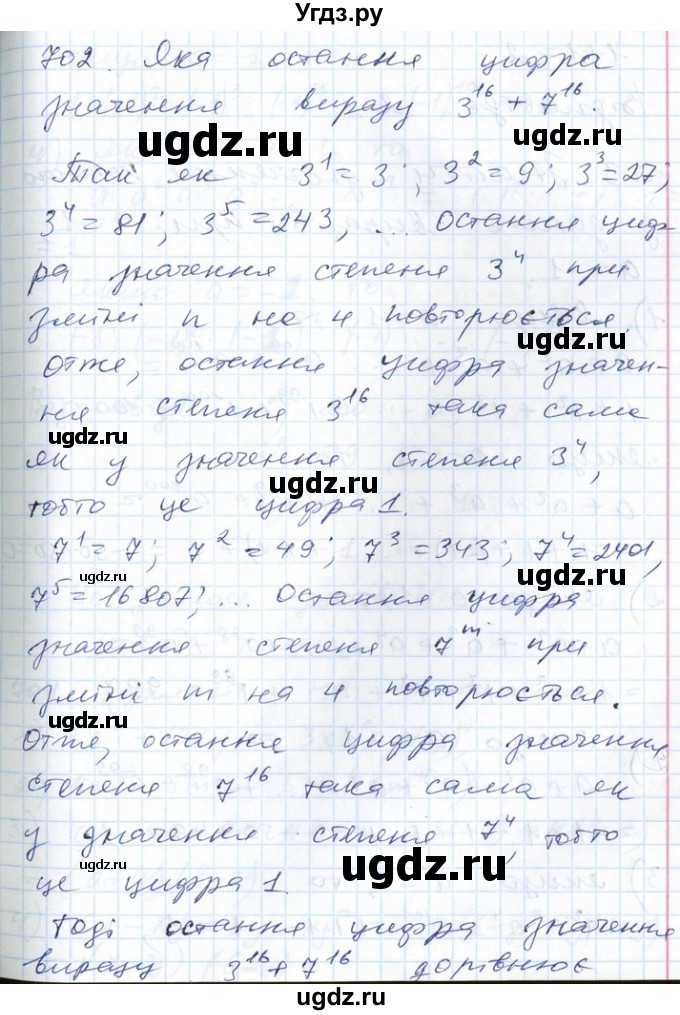 Угдз.ру
702. Яка остання цифра
значення виразу 3^16 + 7^16.
ugdz.ru ugdz.ru
Так як 3^1 = 3; 3^2 = 9; 3^3 = 27;
ugdz.ru
3^4 = 81; 3^5 = 243, ... Остання циф-
ра значення степеня 3^n при
зміні n на 4 повторюється.
ugdz.ru
Отже, остання цифра значен-
ня степеня 3^16 така сама
ugdz.ru
як у значення степеня 3^4,
ugdz.ru
тобто це цифра 1.
7^1 = 7; 7^2 = 49; 7^3 = 343; 7^4 = 2401,
ugdz.ru ugdz.ru
7^5 = 16807; ... Остання цифра
значення степеня 7^m при
зміні m на 4 повторюється.
ugdz.ru ugdz.ru
Отже, остання цифра значення
степеня 7^16 така сама як
у значення степеня 7^4, тобто
ugdz.ru ugdz.ru
це цифра 1.
Тоді остання цифра значення
виразу 3^16 + 7^16 дорівнює
ugdz.ru
ugdz.ru